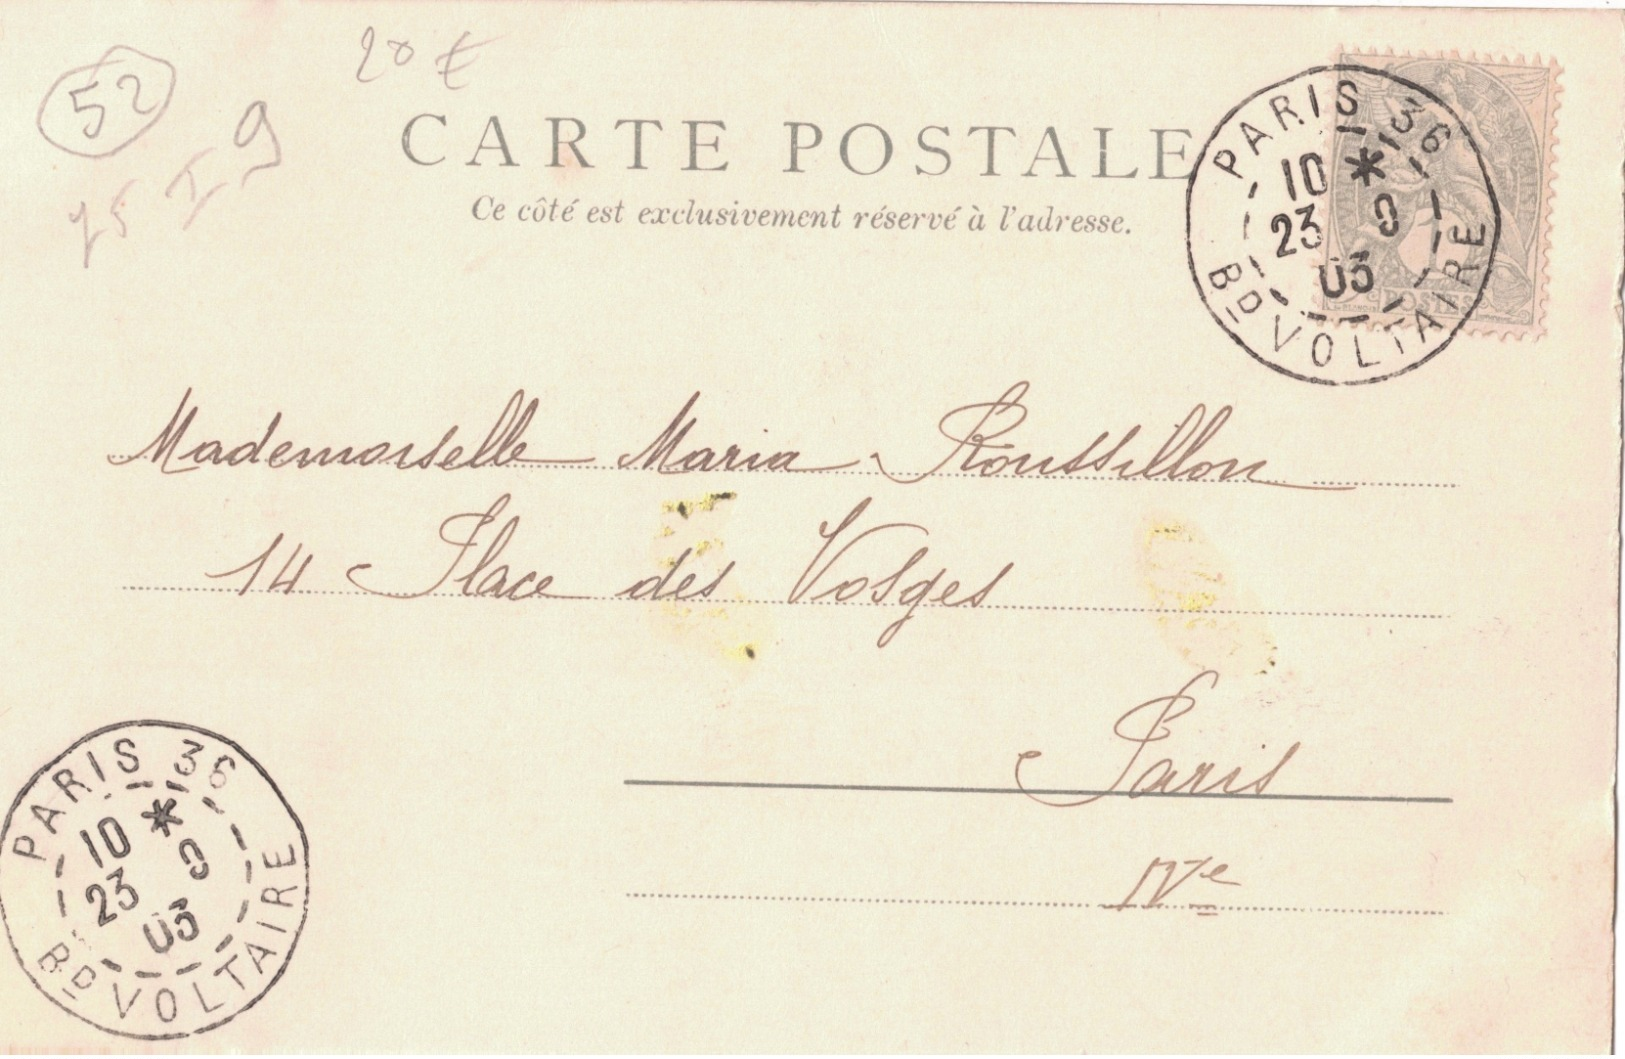 52
20 €
75 I 9
CARTE POSTALE
Ce côté est exclusivement réservé à l'adresse.
PARIS 36
10 *
23 9
03
BD VOLTAIRE
POSTES
Mademoiselle Maria Roussillon
14 Place des Vosges
Paris
IVe
PARIS 36
10 *
23 9
03
BD VOLTAIRE